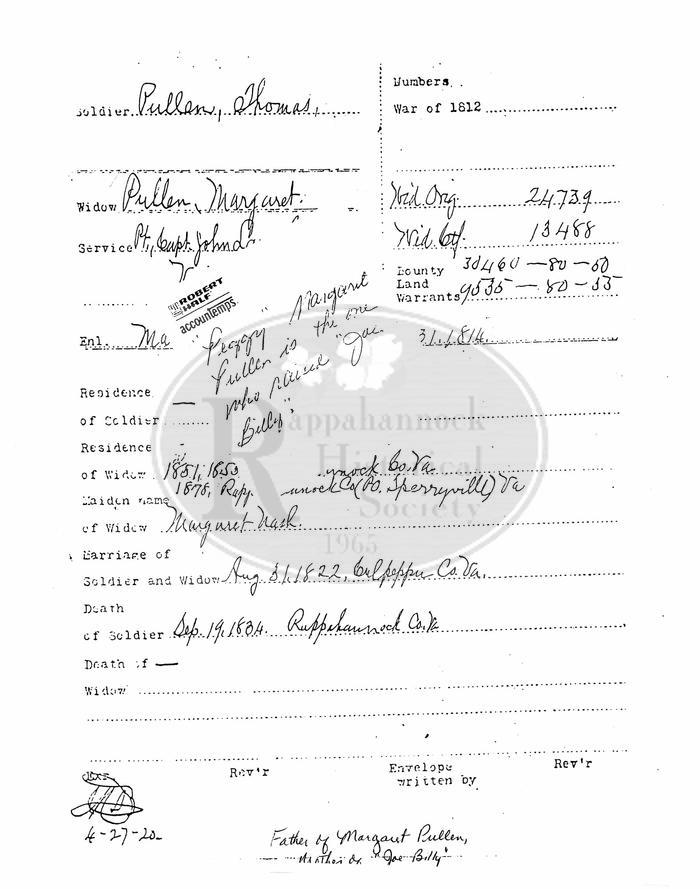 Numbers.
Soldier Pullen, Thomas,
War of 1812
Widow Pullen, Margaret.
Wid. Orig. 24739
Service Pt., Capt. John
Wid. Ctf. 13488
Bounty 30460-80-50
Land
Warrants 9535-80-55
ROBERT
HALF
accountemps.
Enl. Ma
31, 1814.
"Peggy" Margaret
Pullen is the one
who raised "Joe
Billy"
Residence
of Soldier —
Residence
of Widow 1851, 1853 nnock Co. Va.
1878, Rapp. annock Co (P.O. Sperryville) Va
Maiden name
of Widow Margaret Nash.
Marriage of
Soldier and Widow Aug. 31, 1822, Culpepper Co. Va.
Death
of Soldier Sep. 19, 1834. Rappahannock Co. Va
Death of —
Widow
Rappahannock
Historical
Society
1965
Rev'r
Envelope
written by
Rev'r
4-27-20
Father of Margaret Pullen,
Mother of "Joe Billy"